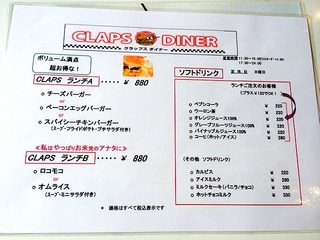 CLAPS DINER
クラップス ダイナー
ボリューム満点
超お得な!
CLAPS ランチA ・・・・・ ¥ 880
・ チーズバーガー
or
・ ベーコンエッグバーガー
or
・ スパイシーチキンバーガー
(スープ・フライドポテト・プチサラダ付き)
≪私はやっぱりお米党のアナタに≫
CLAPS ランチB ・・・・・ ¥ 880
・ ロコモコ
or
・ オムライス
(スープ・ミニサラダ付き)
* 価格はすべて税込表示です
営業時間
定休日 水曜日
ソフトドリンク
ランチご注文のお客様
(プラス¥120でOK!)
・ ペプシコーラ ¥ 220
・ ウーロン茶 ¥ 220
・ オレンジジュース100% ¥ 220
・ グレープフルーツジュース100% ¥ 220
・ パイナップルジュース100% ¥ 220
・ コーヒー(ホット/アイス) ¥ 280
(その他 ソフトドリンク)
・ カルピス ¥ 220
・ アイスミルク ¥ 220
・ ミルクセーキ(バニラ/チョコ) ¥ 290
・ ホットチョコミルク ¥ 290